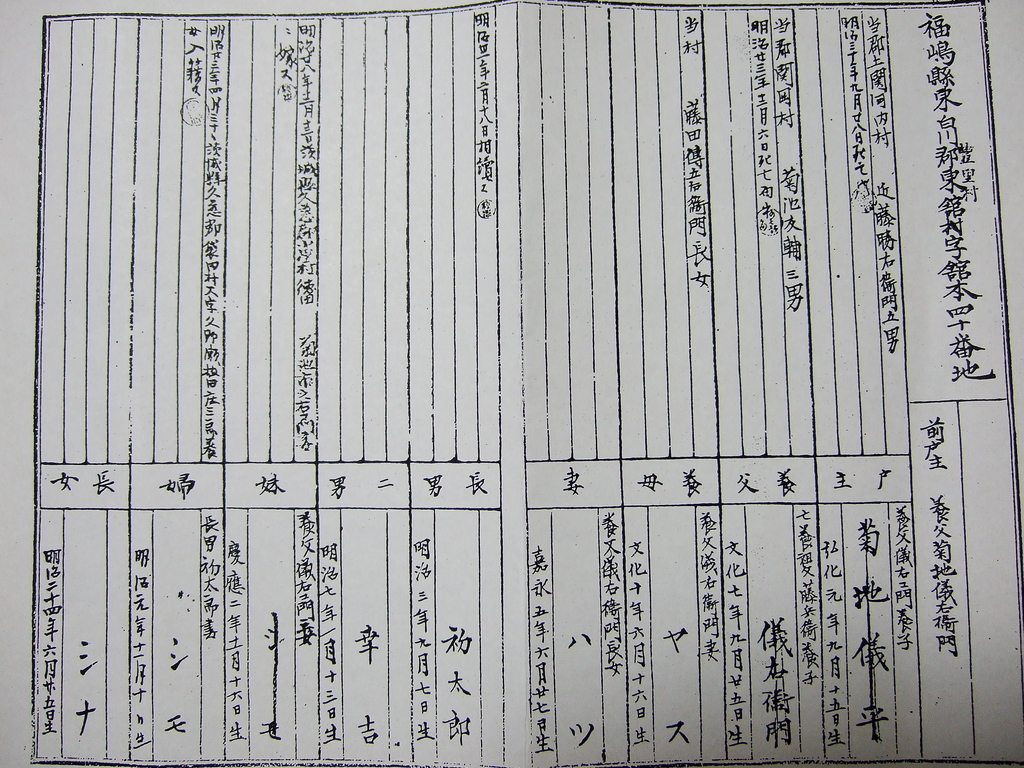 福嶋縣東白川郡東舘村字舘本四十番地
豊里村
前戸主 養父菊地儀右衛門
当郡上関河内村 近藤勝右衛門五男
明治三十年九月廿八日死亡
戸主
養父儀右エ門養子
菊地儀平
弘化元年九月十五日生
当郡関岡村 菊池友輔三男
明治廿三年十二月六日死亡
養父
亡養祖父藤兵衛養子
儀右衛門
文化七年九月廿五日生
当村 藤田傳五右衛門長女
養母
養父儀右衛門妻
ヤス
文化十年六月十六日生
妻
養父儀右衛門長女
ハツ
嘉永五年六月廿七日生
相續ス
長男
初太郎
明治三年九月七日生
二男
幸吉
明治七年一月十三日生
明治廿八年十二月
茨城縣久慈郡
ニ嫁ス
妹
養父儀右エ門
慶應二年十二月十六日生
明治廿三年四月三十日茨城縣久慈郡袋田村大字久野瀬
女入籍ス
婦
長男初太郎妻
シモ
明治元年十二月十日生
長女
シナ
明治二十四年六月廿五日生